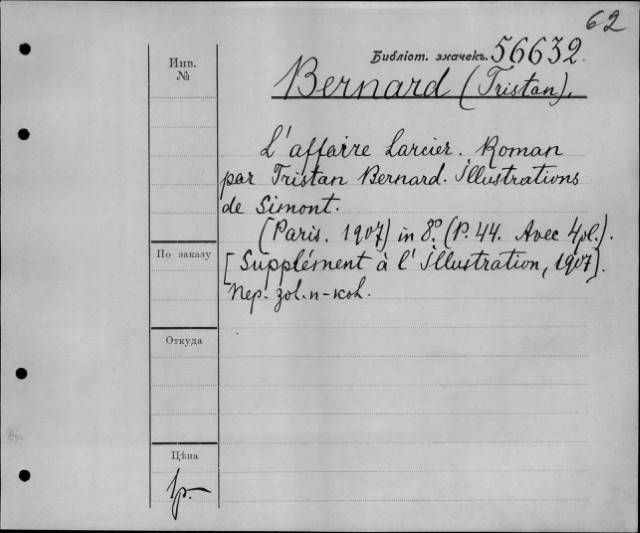 62
Библіот. значекъ. 56632.
Инв.
№
Bernard (Tristan).
L'affaire Larcier. Roman
par Tristan Bernard. Illustrations
de Simont.
(Paris. 1907) in 8º. (P. 44. Avec 4 pl.).
По заказу
[Supplément à l'Illustration, 1907].
Пер. зол. п-кож.
Откуда
Цѣна
1р.-